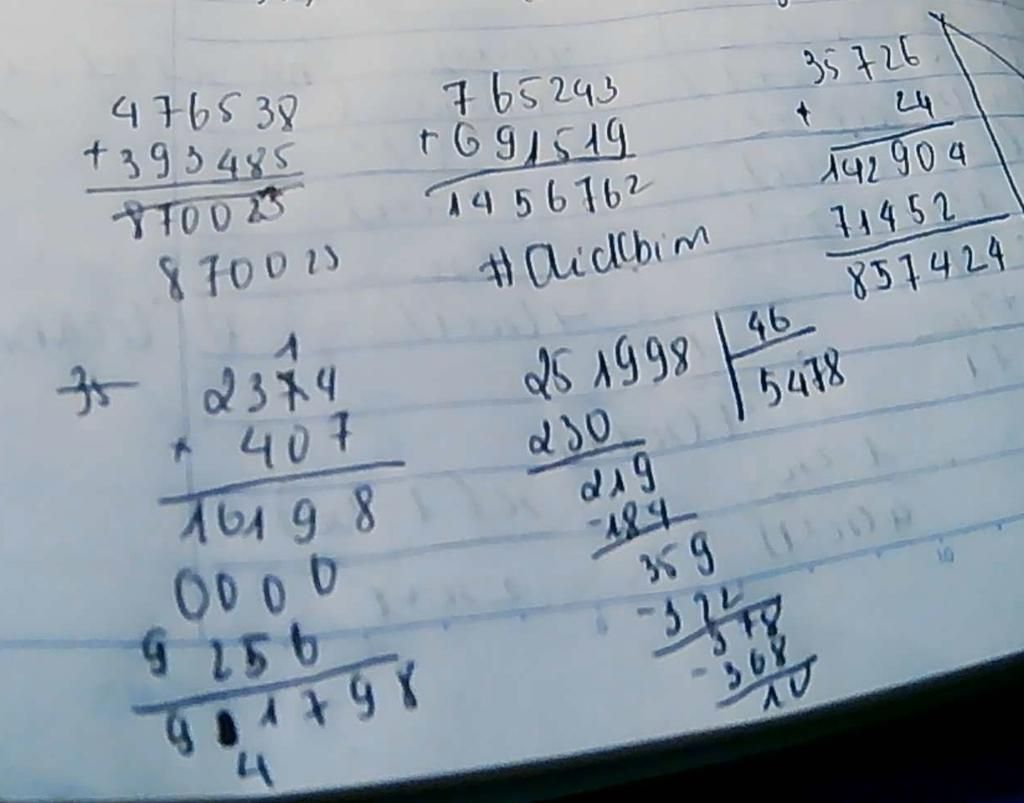 476538
+393485
870023
870023
765243
+691519
1456762
#Aidcbim
35726
+ 24
142904
71452
857424
35
1
2374
× 407
16198
0000
9256
901798
4
251998 46
5478
230
219
-184
359
-322
378
-368
10